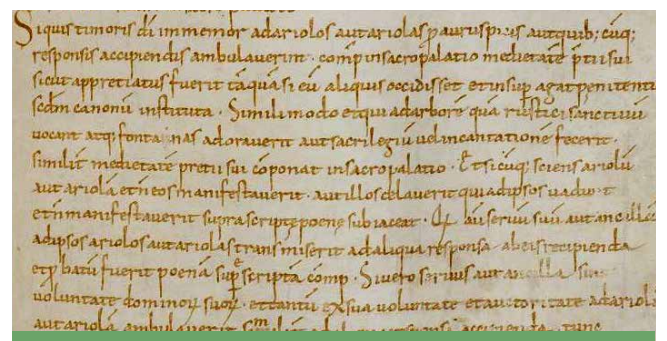 Siquis timoris dī inmemor adariolos autariolas ꝑ auruspicis autquib; cūq;
responsis accipiendis ambulauerint · comp̄ insacropalatio medietatē p̄tii sui
sicut appretiatus fuerit tāquā si eū aliquis occidisset et insuꝑ agat penitentiā
scdm canonū instituta · Simili modo etqui adarborē quā rustici sanctiuū
uocant atq; fontanas adorauerit aut sacrilegiū uel incantationē fecerit ·
similit medietatē pretii sui cōponat insacro palatio · Et si cūq; sciens ariolū
aut ariolā et n̄ eos manifestauerit · aut illos celauerit qui adipsos uadunt
et n̄ manifestauerit supra scriptę poenę subiaceat · aū seruū suū aut ancillā
adipsos ariolos aut ariolas transmiserit ad aliqua responsa abeis recipienda
et ꝓbatū fuerit poenā supͣscriptā comp̄ · Si uero seruus aut ancilla sine
uoluntate dominoꝝ suoꝝ · et tantū exsua uoluntate et auctoritate ad ariolos
aut ariolā ambulauerit accipienda tunc